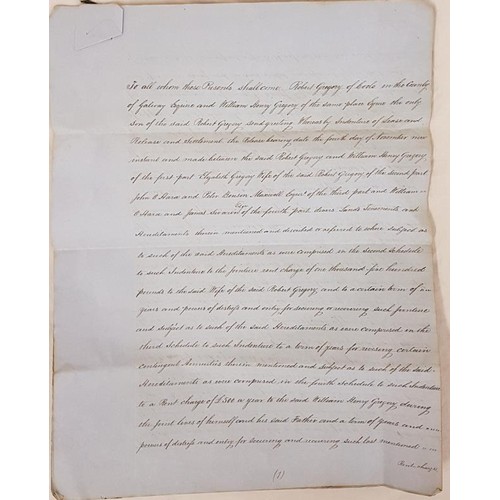 To all whom these Presents shall come Robert Gregory of Coole in the County
of Galway Esquire and William Henry Gregory of the same place Esqre the only
son of the said Robert Gregory send greeting Whereas by Indenture of Lease and
Release and Settlement the Release bearing date the fourth day of November now
instant and made between the said Robert Gregory and William Henry Gregory
of the first part Elizabeth Gregory Wife of the said Robert Gregory of the second part
John O'Hara and Peter Benson Maxwell Esqrs of the third part and William
O'Hara and James Esqr of the fourth part divers Lands Tenements and
Hereditaments therein mentioned and devised or referred to where subject as
to such of the said Hereditaments as were comprised in the Second Schedule
to such Indenture to the jointure rent charge of one thousand five hundred
pounds to the said Wife of the said Robert Gregory, and to a certain term of
years and powers of distress and entry for securing or recovering such jointure
and subject as to such of the said Hereditaments as were comprised in the
third Schedule to such Indenture to a term of years for raising certain
contingent Annuities therein mentioned and subject as to such of the said
Hereditaments as were comprised in the fourth Schedule to such Indenture
to a Rent charge of £500 a year to the said William Henry Gregory, during
the joint lives of himself and his said Father and a term of years and
powers of distress and entry, for securing and recovering such last mentioned
Rent charge
(1)